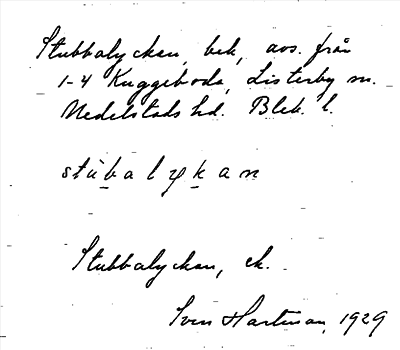 Stubbalyckan, bek, avs. från
1-4 Kuggeboda, Listerby sn.
Medelstads hd. Blek. l.
stùbalykan
Stubbalyckan, ek.
Sven Hartman, 1929